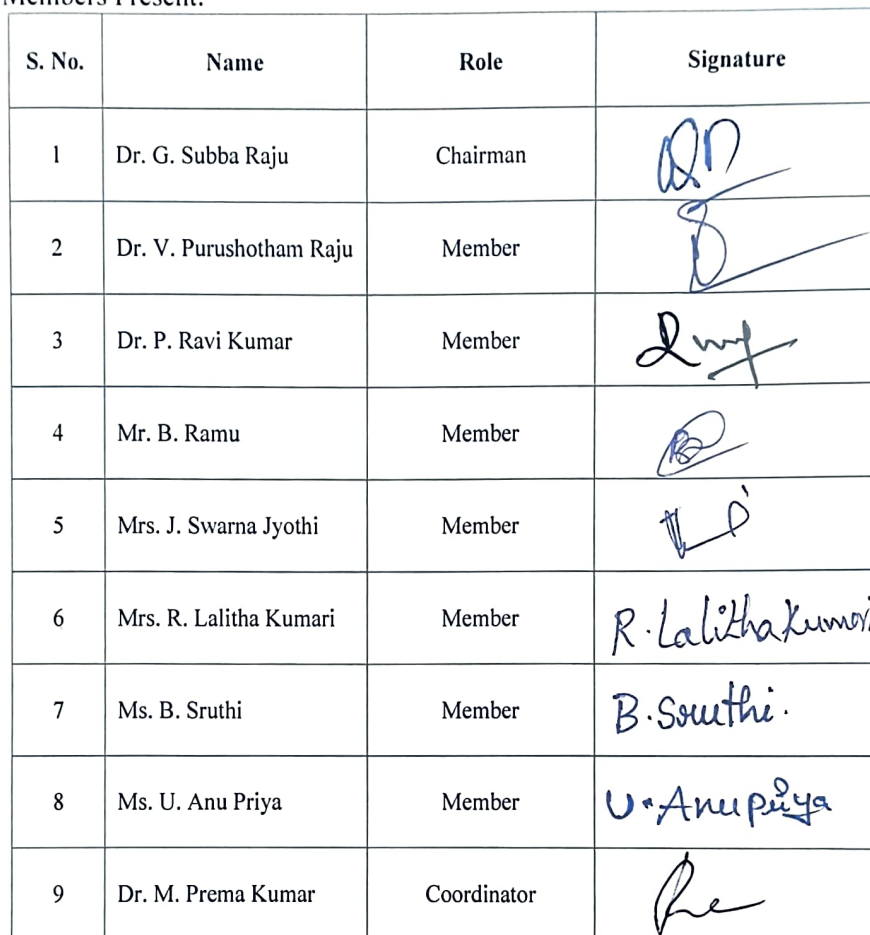 Members Present:
S. No. Name Role Signature
1 Dr. G. Subba Raju Chairman
2 Dr. V. Purushotham Raju Member
3 Dr. P. Ravi Kumar Member
4 Mr. B. Ramu Member
5 Mrs. J. Swarna Jyothi Member
6 Mrs. R. Lalitha Kumari Member R. Lalitha Kumari
7 Ms. B. Sruthi Member B. Sruthi.
8 Ms. U. Anu Priya Member U. Anupriya
9 Dr. M. Prema Kumar Coordinator